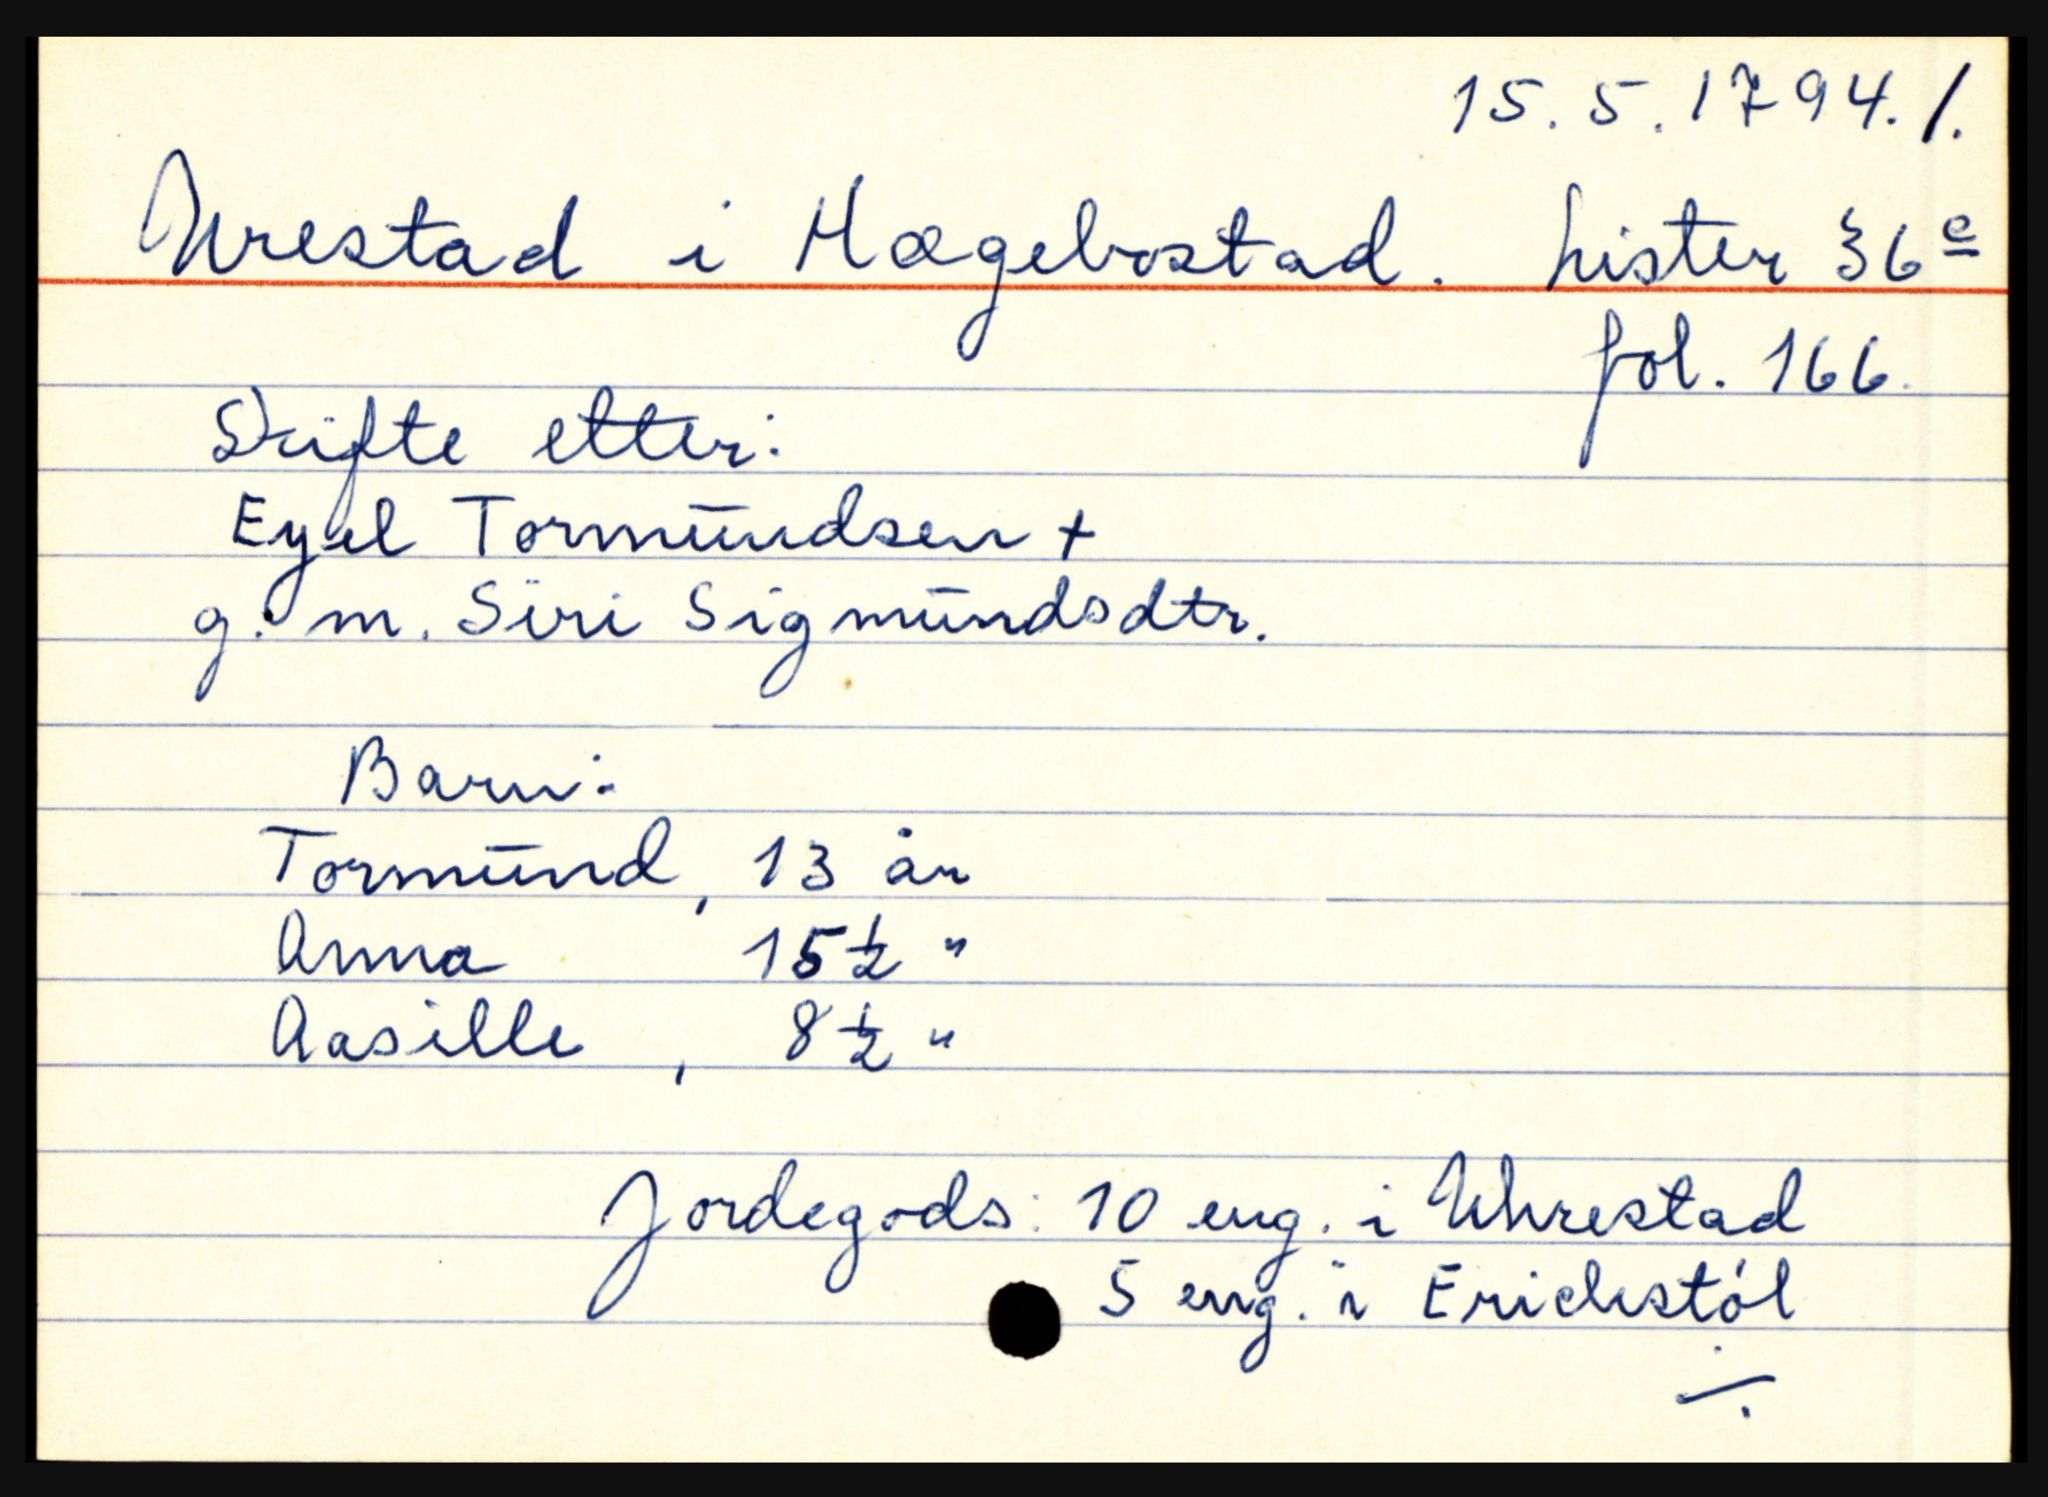 15.5.1794. /.
Urestad i Hægebostad. Lister 36e
fol. 166.
Skifte etter:
Eyel Tormundsen +
g. m. Siri Sigmundsdtr.
Barn:
Tormund, 13 år
Anna 15 1/2 "
Aasille, 8 1/2 "
Jordegods: 10 eng. i Uhrestad
5 eng. i Erichstøl